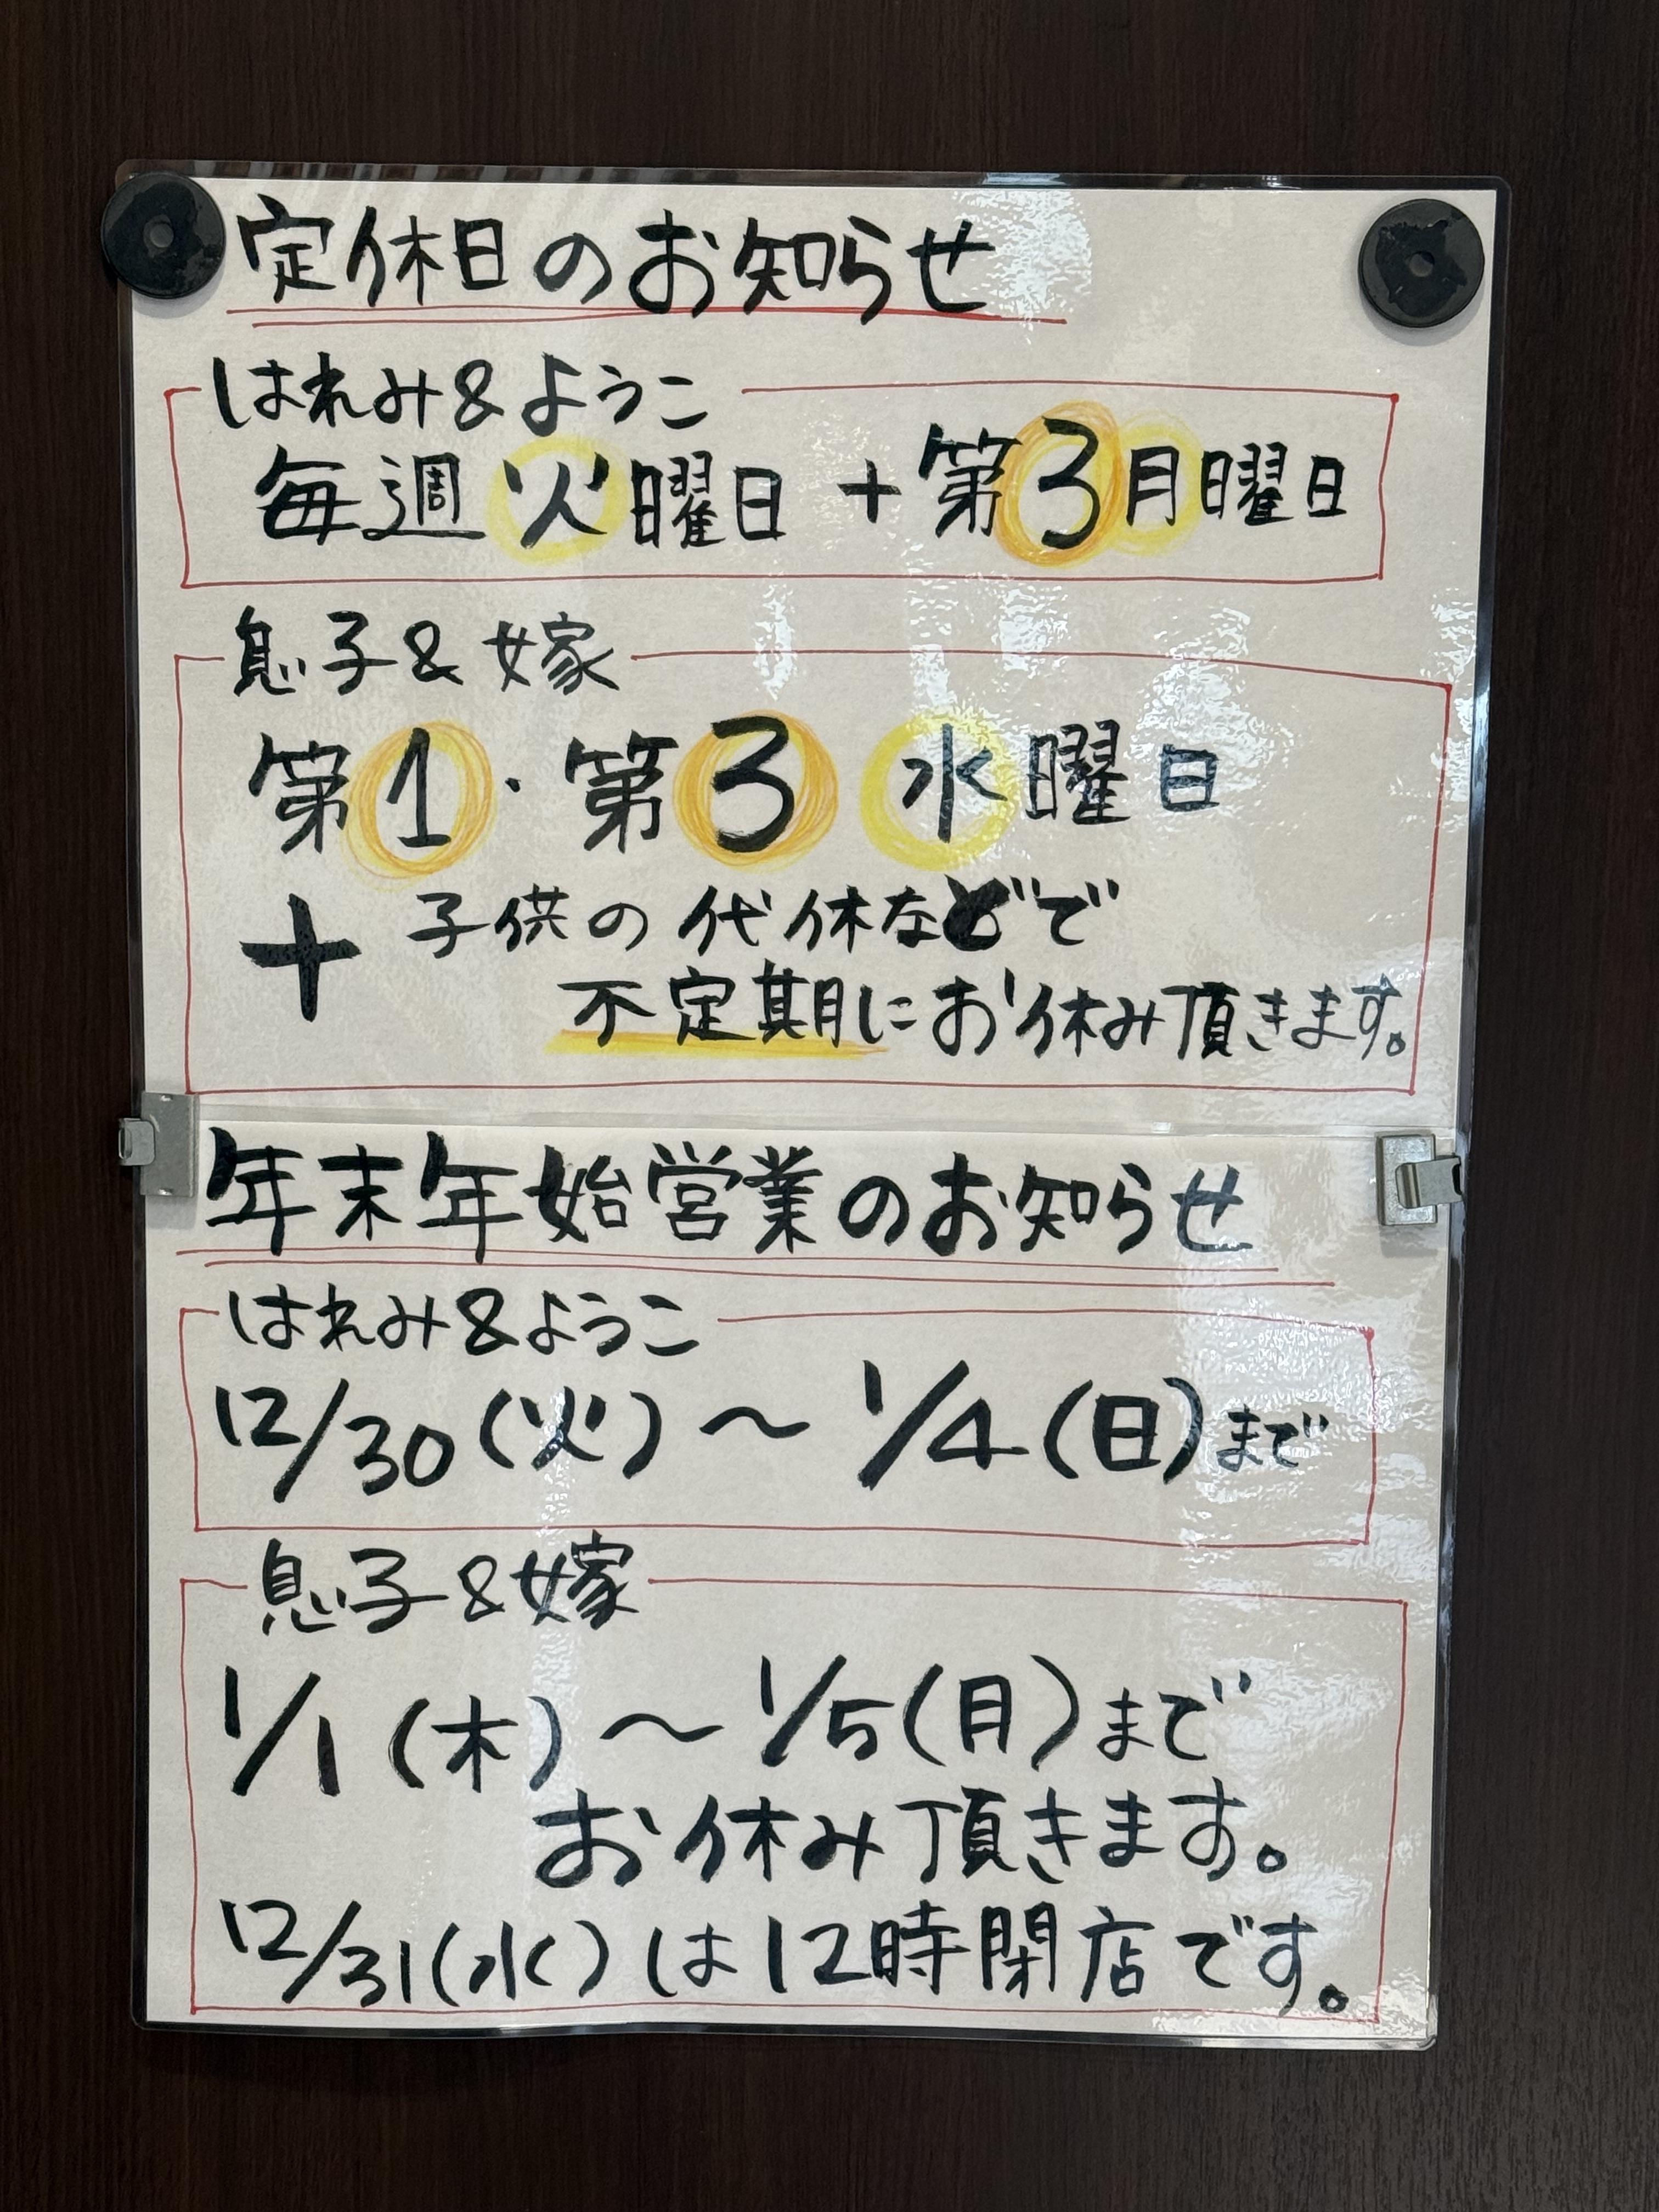 定休日のお知らせ
はれみ&ようこ
毎週火曜日+第3月曜日
息子&嫁
第1・第3 水曜日
+ 子供の代休などで
不定期にお休み頂きます。
年末年始営業のお知らせ
はれみ&ようこ
12/30(火)〜1/4(日)まで
息子&嫁
1/1(木)〜1/5(月)まで
お休み頂きます。
12/31(水)は12時閉店です。